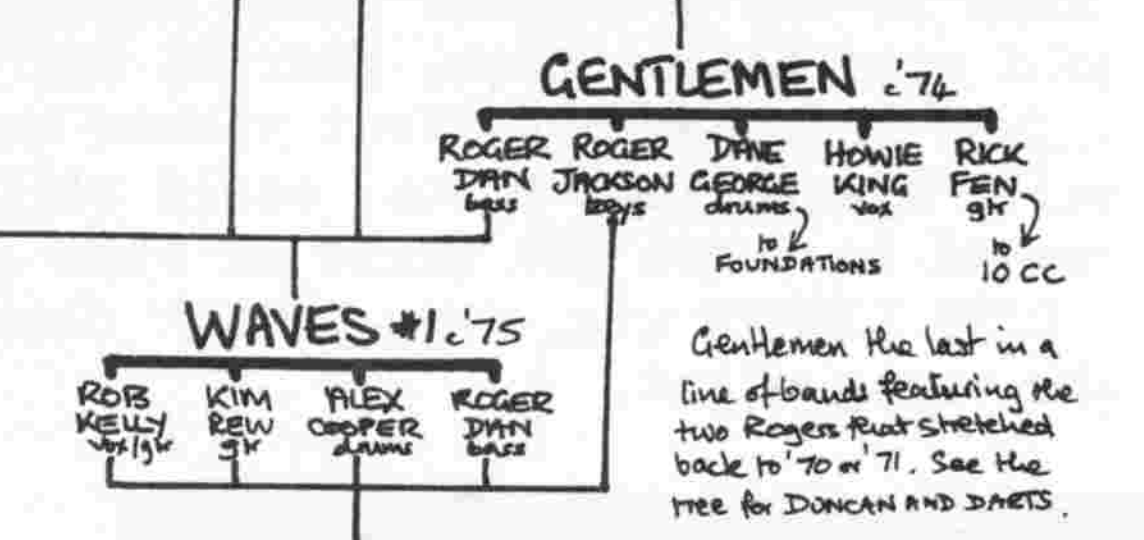 GENTLEMEN c'74
ROGER DAN bass
ROGER JACKSON keys
DAVE GEORGE drums
HOWIE KING vox
RICK FEN gtr
to FOUNDATIONS
to 10 CC
WAVES #1 c'75
ROB KELLY vox/gtr
KIM REW gtr
ALEX COOPER drums
ROGER DAN bass
Gentlemen the last in a
line of bands featuring the
two Rogers that stretched
back to '70 or '71. See the
tree for DUNCAN AND DARTS.